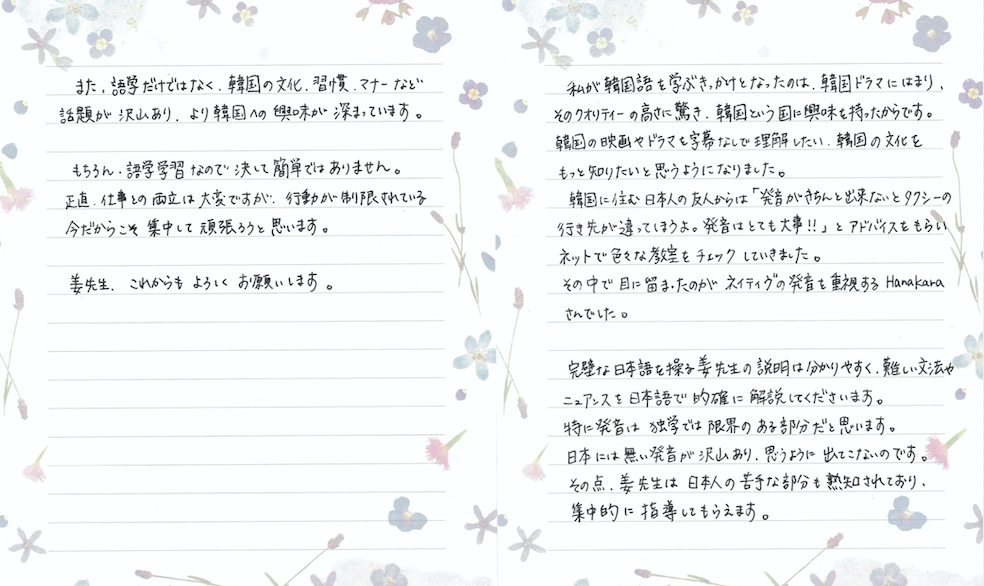 私が韓国語を学ぶきっかけとなったのは、韓国ドラマにはまり、
そのクオリティーの高さに驚き、韓国という国に興味を持ったからです。
韓国の映画やドラマを字幕なしで理解したい、韓国の文化を
もっと知りたいと思うようになりました。
韓国に住む日本人の友人からは「発音がきちんと出来ないとタクシーの
行き先が違ってしまうよ。発音はとても大事!!」とアドバイスをもらい
ネットで色々な教室をチェックしていきました。
その中で目に留まったのがネイティヴの発音を重視するHanakara
さんでした。
完璧な日本語を操る姜先生の説明は分かりやすく、難しい文法や
ニュアンスを日本語で的確に解説してくださいます。
特に発音は独学では限界のある部分だと思います。
日本には無い発音が沢山あり、思うように出てこないのです。
その点、姜先生は日本人の苦手な部分も熟知されており、
集中的に指導してもらえます。
また、語学だけではなく、韓国の文化、習慣、マナーなど
話題が沢山あり、より韓国への興味が深まっています。
もちろん、語学学習なので決して簡単ではありません。
正直、仕事との両立は大変ですが、行動が制限されている
今だからこそ集中して頑張ろうと思います。
姜先生、これからもよろしくお願いします。